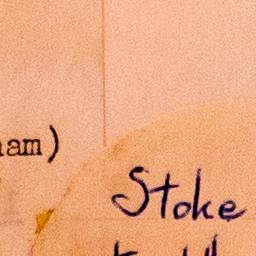 ham)
Stoke